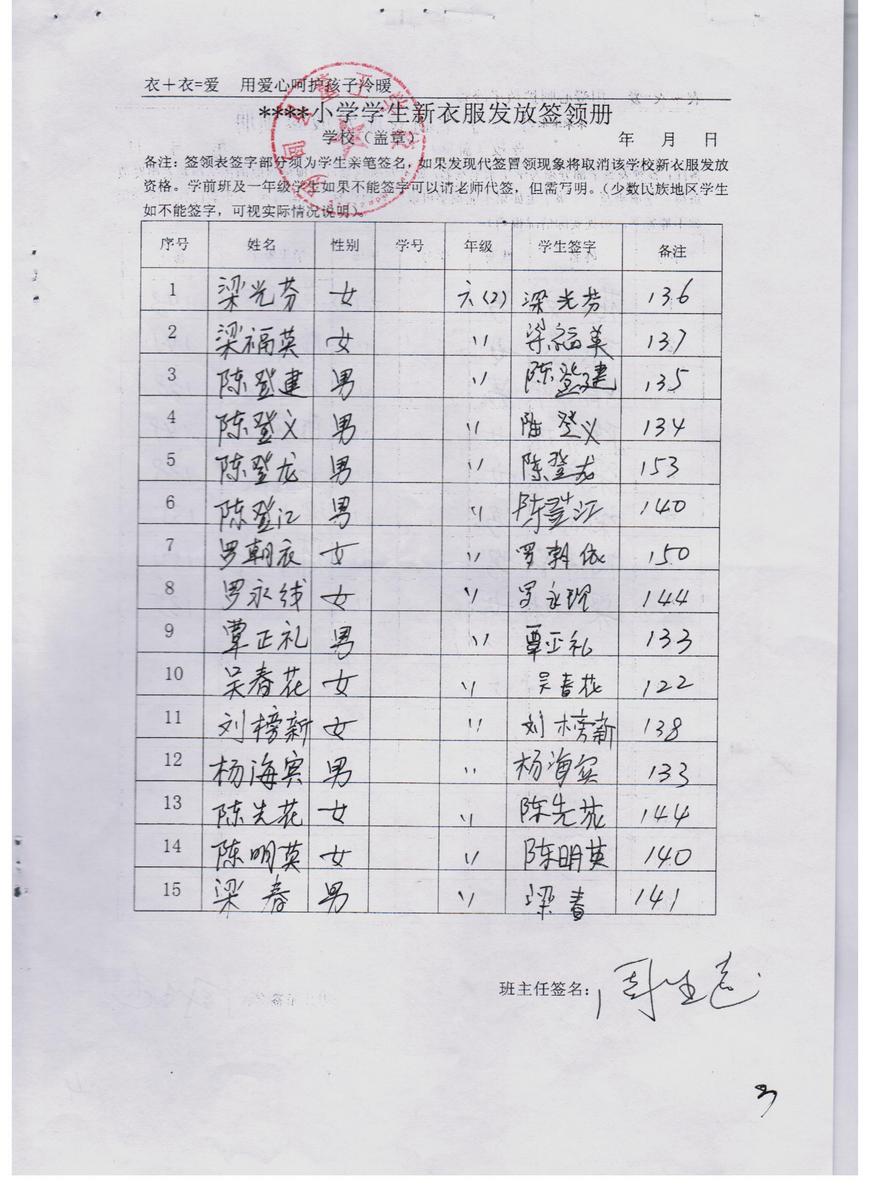 衣+衣=爱 用爱心呵护孩子冷暖
****小学学生新衣服发放签领册
学校（盖章） 年 月 日
备注：签领表签字部分须为学生亲笔签名，如果发现代签冒领现象将取消该学校新衣服发放
资格。学前班及一年级学生如果不能签字可以请老师代签，但需写明。（少数民族地区学生
如不能签字，可视实际情况说明）。
序号 姓名 性别 学号 年级 学生签字 备注
1 梁光芬 女 六(2) 梁光芬 136
2 梁福英 女 〃 梁福美 137
3 陈登建 男 〃 陈登建 135
4 陈登义 男 〃 陆登义 134
5 陈登龙 男 〃 陈登龙 153
6 陈登江 男 〃 陈登江 140
7 罗朝衣 女 〃 罗朝依 150
8 罗永线 女 〃 罗永现 144
9 覃正礼 男 〃 覃正礼 133
10 吴春花 女 〃 吴春花 122
11 刘榜新 女 〃 刘榜新 138
12 杨海宾 男 〃 杨海宾 133
13 陈先花 女 〃 陈先花 144
14 陈明英 女 〃 陈明英 140
15 梁春 男 〃 梁春 141
班主任签名：
3